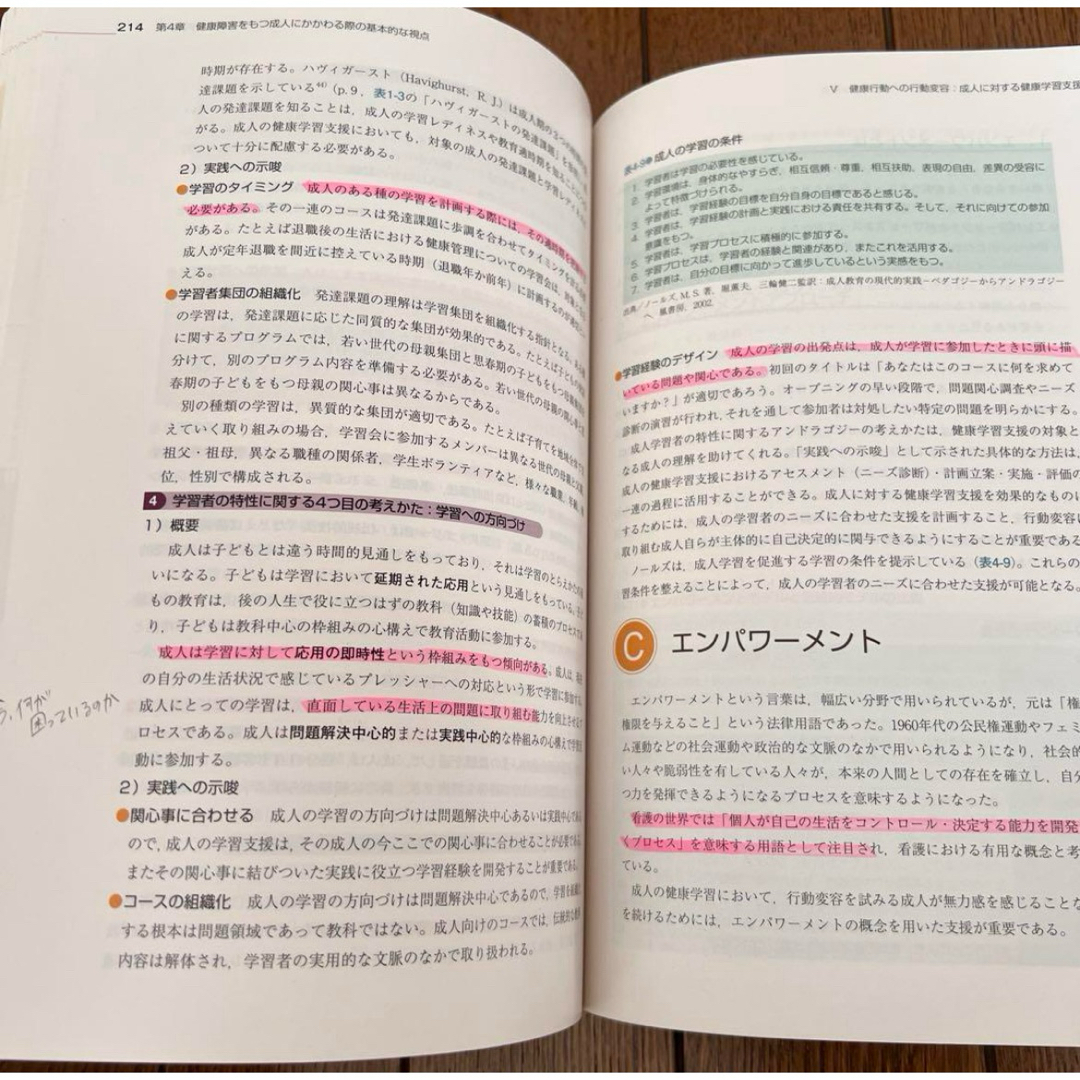 214 第4章 健康障害をもつ成人にかかわる際の基本的な視点
時期が存在する。ハヴィガースト（Havighurst, R. J.）は成人期の3つの
達課題を示している44)（p.9，表1-3の「ハヴィガーストの発達課題」を
人の発達課題を知ることは，成人の学習レディネスや教育適時期を知ることに
がる。成人の健康学習支援においても，対象の成人の発達課題と学習レディネス
ついて十分に配慮する必要がある。
2）実践への示唆
●学習のタイミング 成人のある種の学習を計画する際には，その適時期を
必要がある。その一連のコースは発達課題に歩調を合わせてタイミングを
がある。たとえば退職後の生活における健康管理についての学習会は，
成人が定年退職を間近に控えている時期（退職年か前年）に計画するのが
える。
●学習者集団の組織化 発達課題の理解は学習集団を組織化する指針となる。
の学習は，発達課題に応じた同質的な集団が効果的である。たとえば子どもの
に関するプログラムでは，若い世代の母親集団と思春期の子どもをもつ母親
分けて，別のプログラム内容を準備する必要がある。若い世代の母親の関心事と
春期の子どもをもつ母親の関心事は異なるからである。
別の種類の学習は，異質的な集団が適切である。たとえば子育てを地域
えていく取り組みの場合，学習会に参加するメンバーは異なる世代の母親と
祖父・祖母，異なる職種の関係者，学生ボランティアなど，様々な職業，年齢，
位，性別で構成される。
4 学習者の特性に関する4つ目の考えかた：学習への方向づけ
1）概要
成人は子どもとは違う時間的見通しをもっており，それは学習のとらえかたの
いになる。子どもは学習において延期された応用という見通しをもっている。
もの教育は，後の人生で役に立つはずの教科（知識や技能）の蓄積のプロセスで
り，子どもは教科中心の枠組みの心構えで教育活動に参加する。
成人は学習に対して応用の即時性という枠組みをもつ傾向がある。成人は，
の自分の生活状況で感じているプレッシャーへの対応という形で学習に参加する。
成人にとっての学習は，直面している生活上の問題に取り組む能力を向上させる
ロセスである。成人は問題解決中心的または実践中心的な枠組みの心構えで学習
動に参加する。
何が
困っているのか
2）実践への示唆
●関心事に合わせる 成人の学習の方向づけは問題解決中心あるいは実践中心である
ので，成人の学習支援は，その成人の今ここでの関心事に合わせることが必要である。
またその関心事に結びついた実践に役立つ学習経験を開発することが重要である。
●コースの組織化 成人の学習の方向づけは問題解決中心であるので，学習を組織
する根本は問題領域であって教科ではない。成人向けのコースでは，伝統的な教
内容は解体され，学習者の実用的な文脈のなかで取り扱われる。
V 健康行動への行動変容：成人に対する健康学習支援
表4-9 成人の学習の条件
1. 学習者は学習の必要性を感じている。
2. 学習環境は，身体的なやすらぎ，相互信頼・尊重，相互扶助，表現の自由，差異の受容に
よって特徴づけられる。
3. 学習者は，学習経験の目標を自分自身の目標であると感じる。
4. 学習者は，学習経験の計画と実践における責任を共有する。そして，それに向けての参加
意識をもつ。
5. 学習者は，学習プロセスに積極的に参加する。
6. 学習プロセスは，学習者の経験と関連があり，またこれを活用する。
7. 学習者は，自分の目標に向かって進歩しているという実感をもつ。
出典／ノールズ，M. S. 著，堀薫夫，三輪健二監訳：成人教育の現代的実践－ペダゴジーからアンドラゴジー
へ，鳳書房，2002．
●学習経験のデザイン 成人の学習の出発点は，成人が学習に参加したときに頭に描
いている問題や関心である。初回のタイトルは「あなたはこのコースに何を求めて
いますか？」が適切であろう。オープニングの早い段階で，問題関心調査やニーズ
診断の演習が行われ，それを通して参加者は対処したい特定の問題を明らかにする。
成人学習者の特性に関するアンドラゴジーの考えかたは，健康学習支援の対象と
なる成人の理解を助けてくれる。「実践への示唆」として示された具体的な方法は，
成人の健康学習支援におけるアセスメント（ニーズ診断）・計画立案・実施・評価の
一連の過程に活用することができる。成人に対する健康学習支援を効果的なものに
するためには，成人の学習者のニーズに合わせた支援を計画すること，行動変容に
取り組む成人自らが主体的に自己決定的に関与できるようにすることが重要である
ノールズは，成人学習を促進する学習の条件を提示している（表4-9）。これらの
習条件を整えることによって，成人の学習者のニーズに合わせた支援が可能となる。
C エンパワーメント
エンパワーメントという言葉は，幅広い分野で用いられているが，元は「権
権限を与えること」という法律用語であった。1960年代の公民権運動やフェミ
ム運動などの社会運動や政治的な文脈のなかで用いられるようになり，社会的
い人々や脆弱性を有している人々が，本来の人間としての存在を確立し，自分
つ力を発揮できるようになるプロセスを意味するようになった。
看護の世界では「個人が自己の生活をコントロール・決定する能力を開発
くプロセス」を意味する用語として注目され，看護における有用な概念と考
ている。
成人の健康学習において，行動変容を試みる成人が無力感を感じることな
を続けるためには，エンパワーメントの概念を用いた支援が重要である。